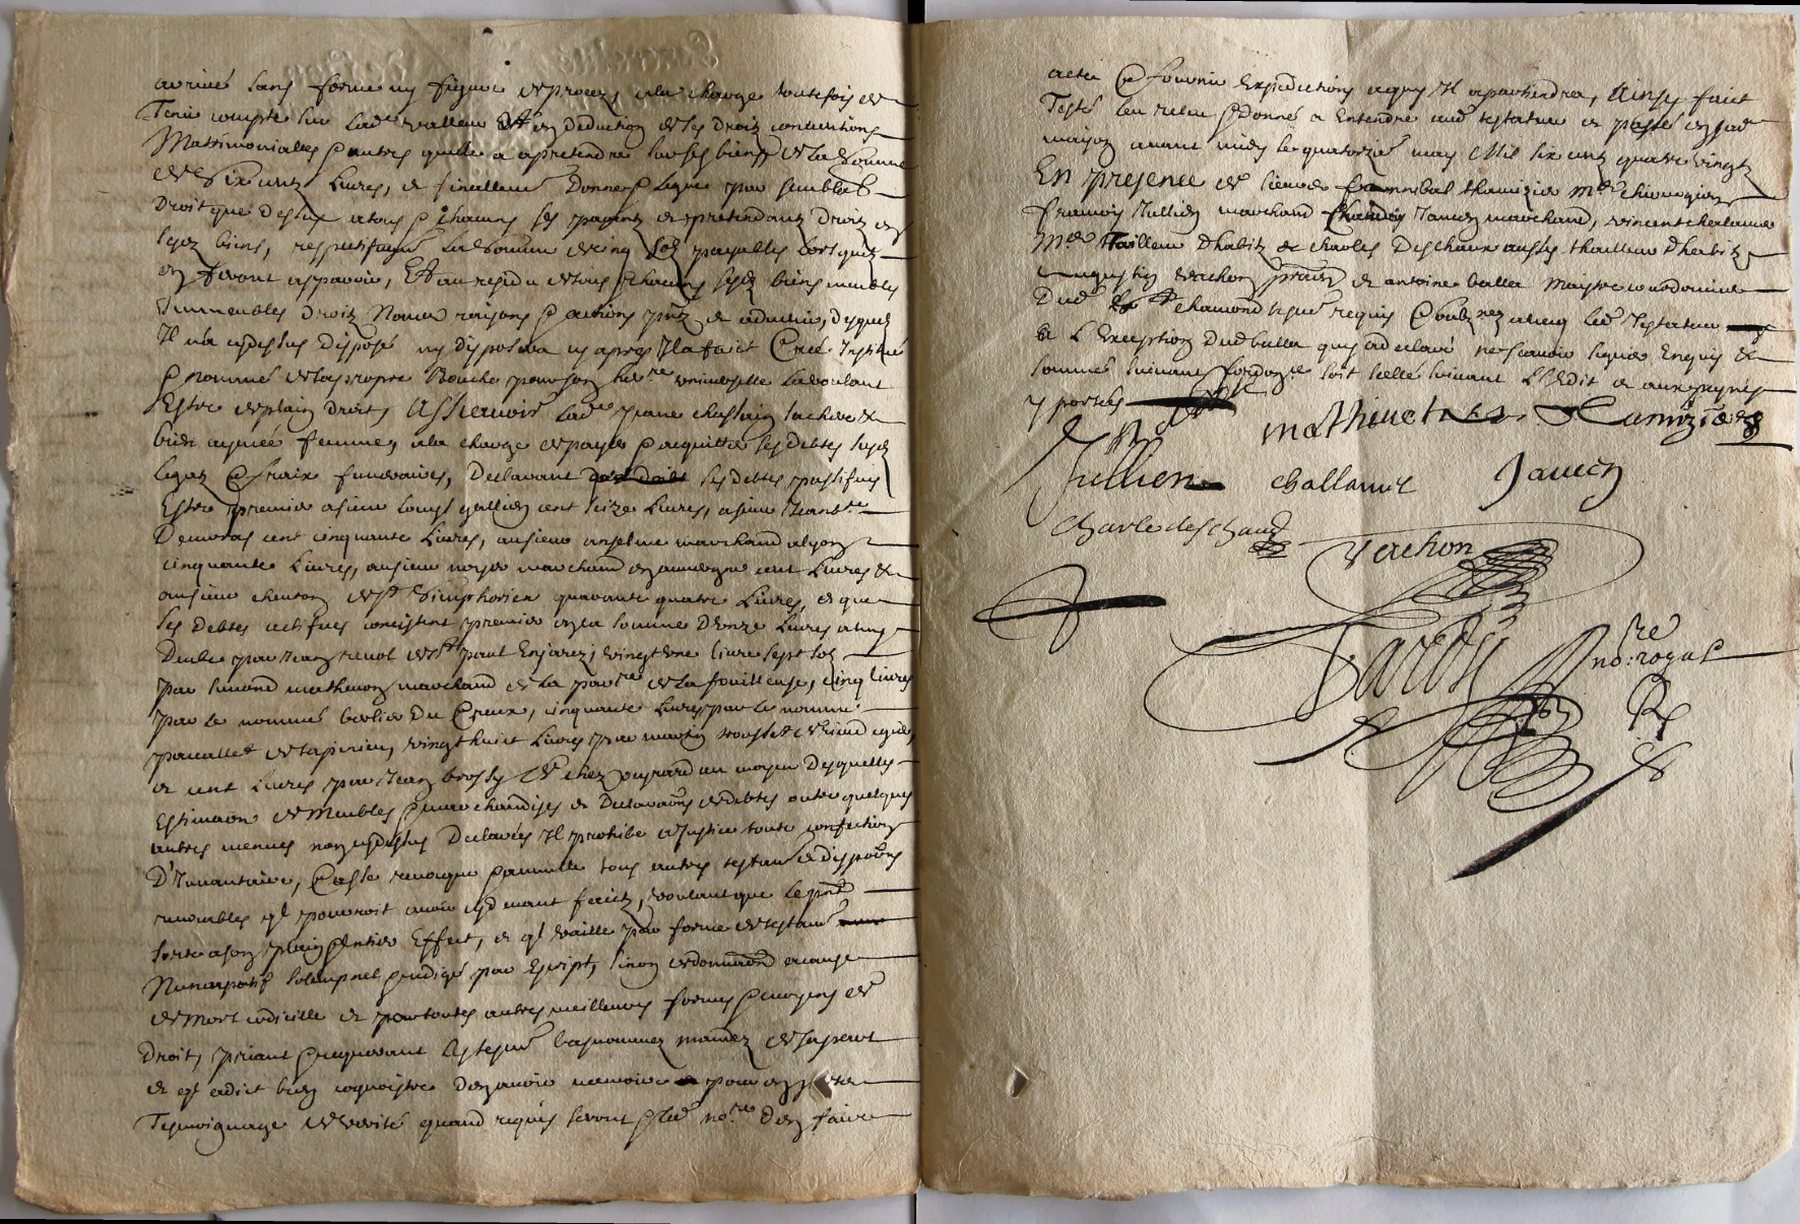 arrivé sans forme ny figure de procez a la charge toutefois de
Tenir compte sur lad valleur Et en deduction de ses droitz conventions
Matrimonialles & autres quelle a a pretendre sur ses biens de la somme
de six centz Livres, et finallemt Donne & Legue par semblable
Droit que dessus a tous & chacuns ses parentz et pretendantz droitz en
ses biens, respectifvemt la somme de cinq solz payables lorsquilz
en feront apparoir, Et au residu de tous & chacuns sesd biens meubles
Immeubles Droitz Noms raisons & actions pntz et advenir, desquelz
Il n'a cydessus disposé ny disposera cy apres Il a fait Créé Institué
& nommé de sa propre Bouche pour son herre universelle La voulant
Estre de plain droit, Assavoir Lade Jeane chastaing sa chere &
bien aymée femme, a la charge de payer & acquitter ses debtes sesd
Legatz & fraix funeraires, Declarant ses debtes passifves
Estre premier a sieur Louis gallien cent seize Livres, a sieur Jean bte
cent cinquante Livres, au sieur anselme marchand a lyon
cinquante Livres, au sieur noyer marchand en auvergne cent Livres &
au sieur chenton de st simphorien quarante quatre Livres, et que
ses debtes actifves consistent premier en la somme d'onze Livres a luy
Deube par Jean revol de st paul Enjarez, vingt une livre sept solz
par simond matheron marchand de La parre de La fouilleuse, cinq livres
par le nommé berlier du Creux, cinquante Livres par le nommé
vingt huict Livres par martin
et cent Livres par Jean brossy de chez peyrard au moyen desquelles
Estimaon de meubles & marchandises et declaraons de debtes outre quelques
autres menues non cydessus Declarées Il prohibe a Justice toute confection
D'Inventaire, Casse revoque & annulle tous autres testamt et disposons
revocables ql pourroit avoir cydevant faictz, voulant que le pnt
sorte a son plain & entier Effect, et ql vaille par forme de testamt
Nuncupatif solempnel & redigé par Escript, sinon de donnaon a cause
de mort codicille et par toutes autres meilleures formes & moyens de
Droit, priant & requerant les tesmt bas nommez mandez de sa part
et ql a dict bien cognoistre d'en avoir memoire pour en porter
Tesmoignage de verité quand requis seront & led nore d'en faire
acte & fournir Expeditions a quy Il apartiendra, Ainsy faict
Testé leu releu & donné a Entendre aud testateur et passé en sad
maison avant midy le quatorzie may Mil six centz quatre vingtz
En presence de sieurs hannibal thamizier Me chirurgien
francois Jullien marchand Janin marchand, vincent chalamel
Me Tailleur d'habitz & charles Deschaux aussy thailleur d'habitz
augustin verchon prat et antoine balla Maistre cordonnier
Dud st chamond tesmt requis & soubznez avecq led Testateur
a L'Exception dud balla quy a declaré ne scavoir signer Enquis &
sommé suivant l'ordonce soit scellé suivant L'Edit et aux peynes
y portées
Mathieuet Tamizier
Jullien challamel Janin
Charle deschaux
Verchon
Bardin nore royal